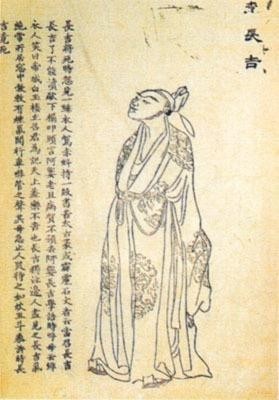 李長吉
長吉將死時忽見一緋衣人駕赤虯持一版書若太古篆或霹靂石文者云當召長吉
長吉了不能讀欻下榻叩頭言阿㜷老且病賀不願去阿㜷長吉學語時呼母云緋
衣人笑曰帝成白玉樓立召君為記天上差樂不苦也長吉獨泣邊人盡見之長吉氣
絕常所居窗中勃勃有煙氣聞行車嘒管之聲其母急止人哭待之如炊五斗黍許時長
吉竟死